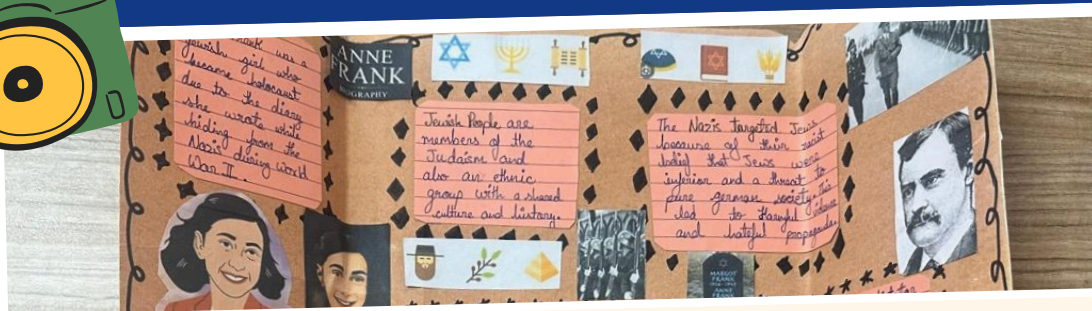 Frank was a
jewish girl who
became holocaust
due to the diary
she wrote while
hiding from the
Nazis during world
War II.
ANNE
FRANK
BIOGRAPHY
Jewish People are
members of the
Judaism and
also an ethnic
group with a shared
culture and history.
The Nazis targeted Jews
because of their racist
belief that Jews were
inferior and a threat to
pure german society. This
led to Harmful violence
and hateful propaganda.
MARGOT
FRANK
ANNE
FRANK